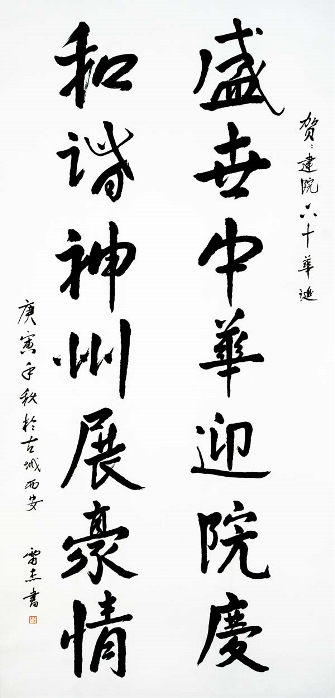 贺：建院六十華诞
盛世中華迎院慶
和谐神州展豪情
庚寅年秋於古城西安
雷杰書